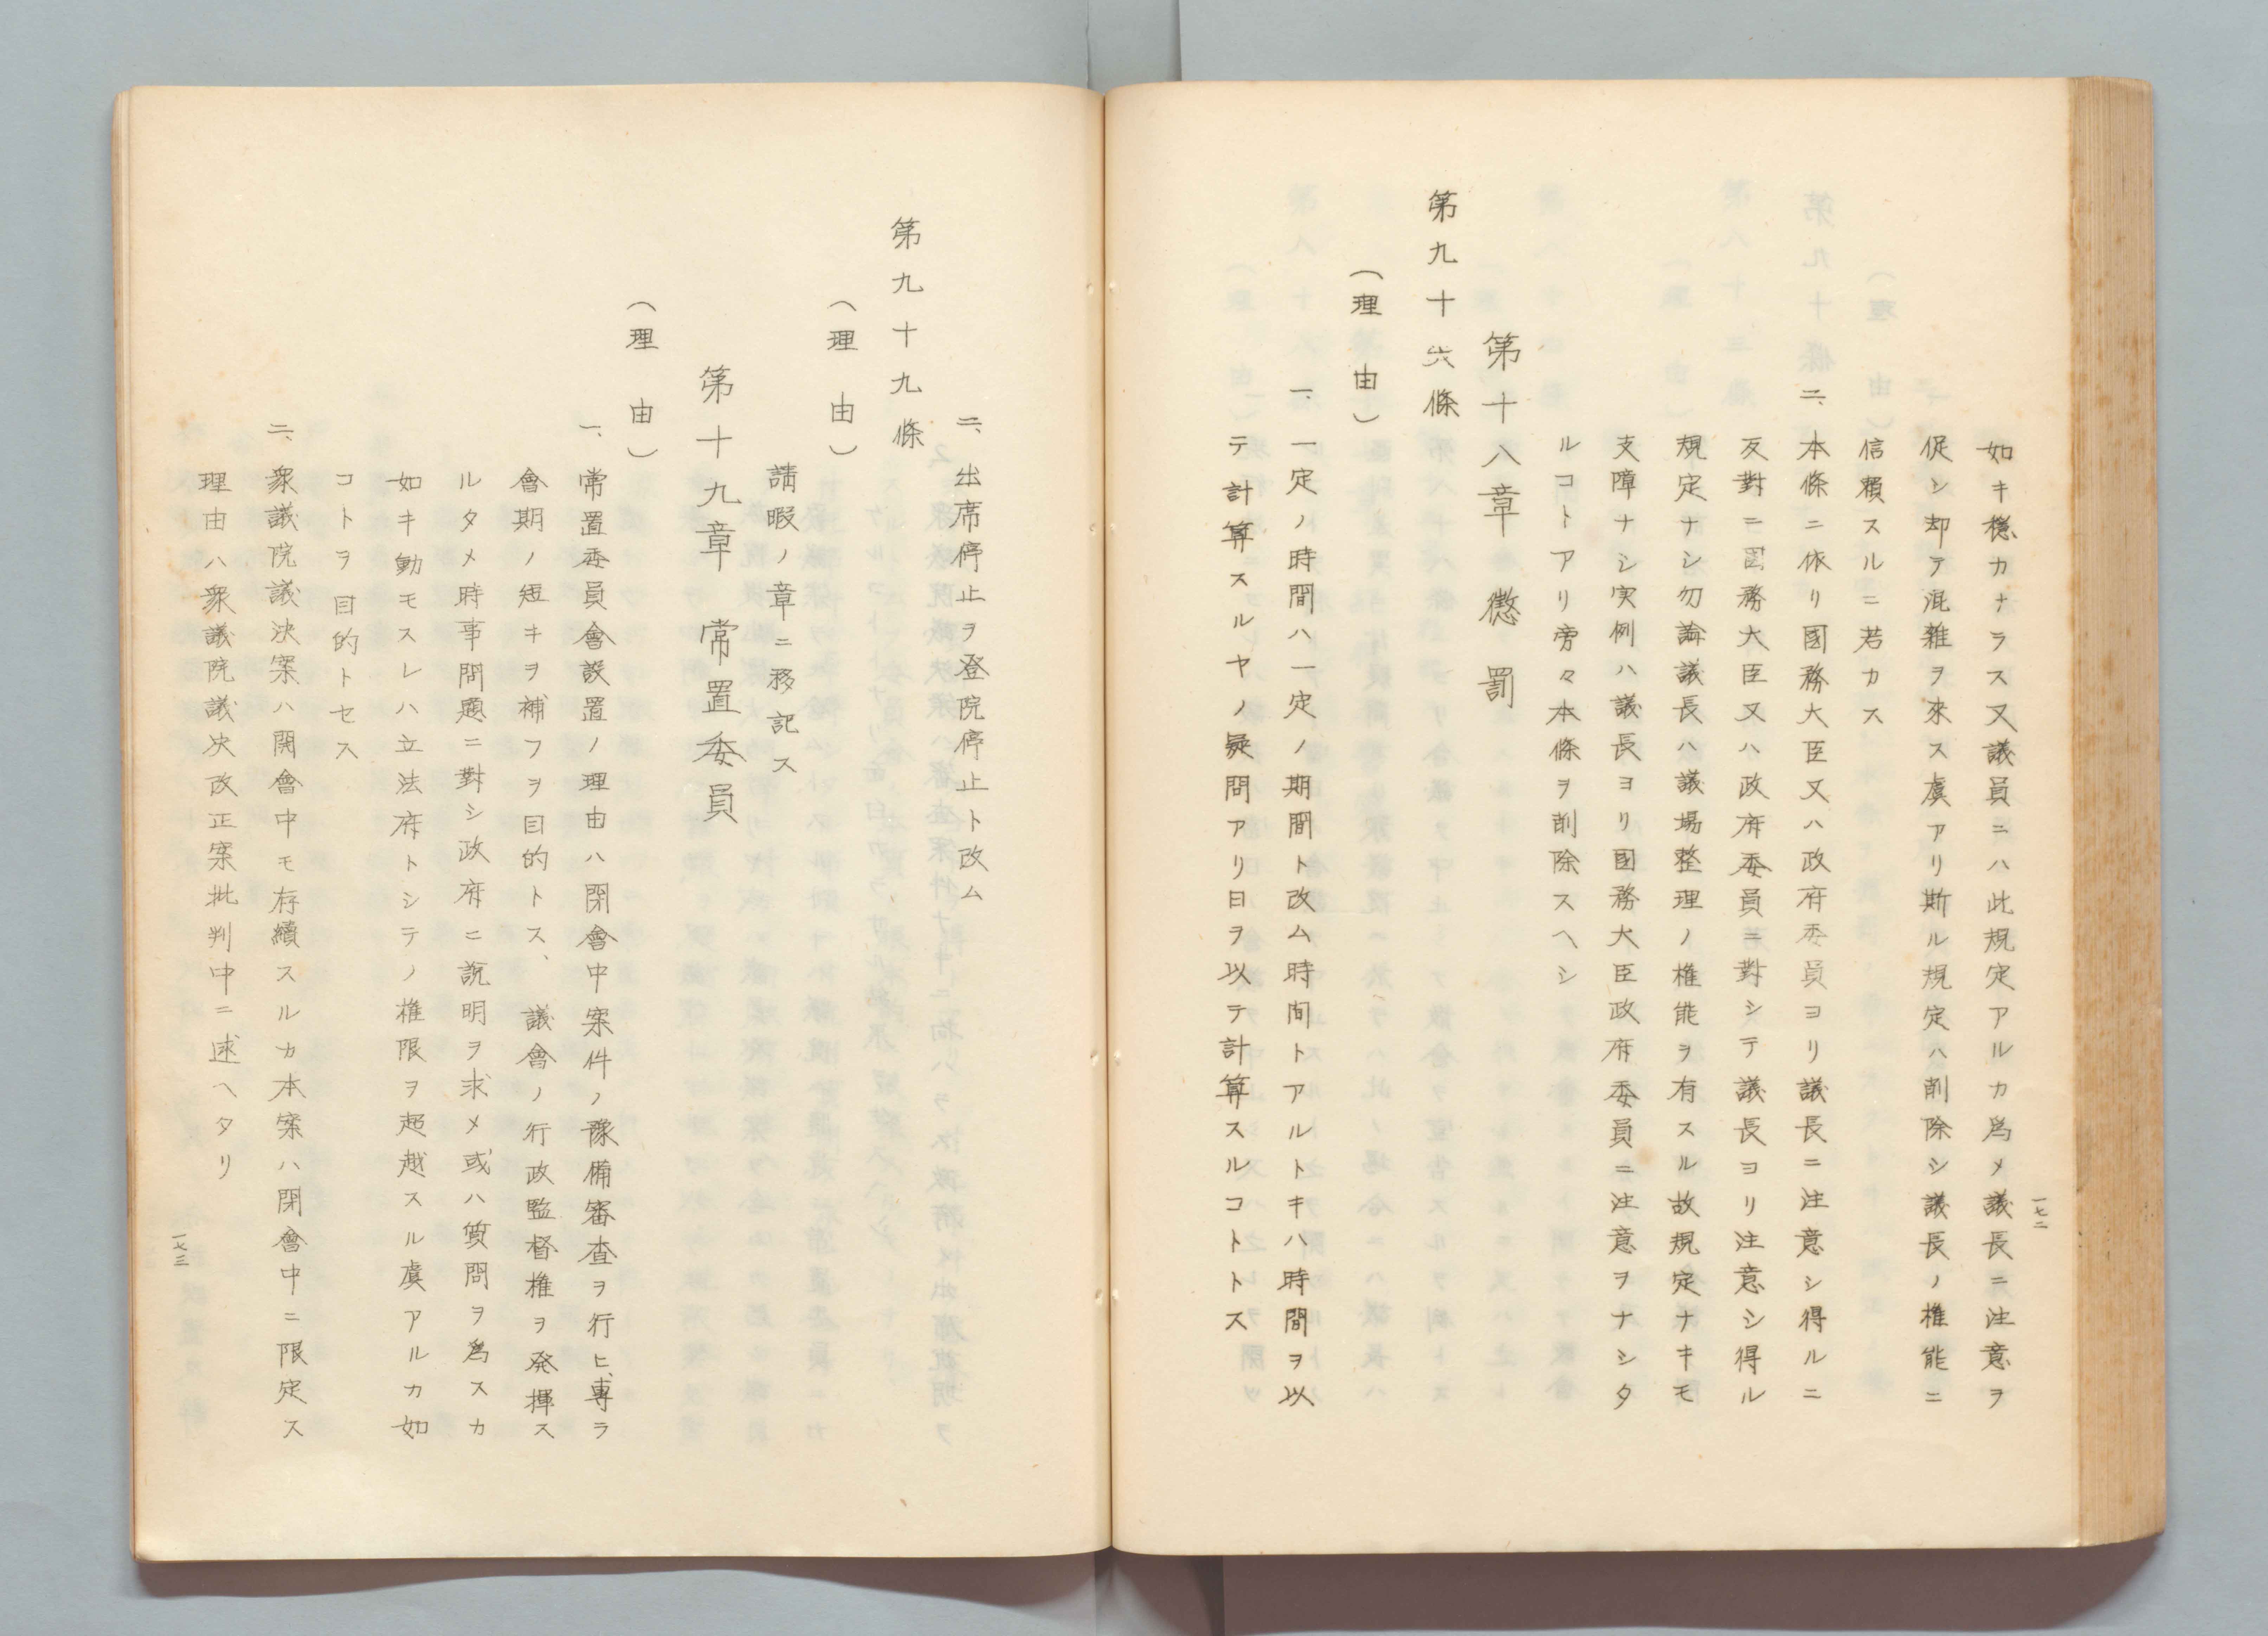 如キ穏カナラス又議員ニハ此規定アルカ爲メ議長ニ注意ヲ
促シ却テ混雜ヲ來ス虞アリ斯ル規定ハ削除シ議長ノ權能ニ
信賴スルニ若カス
二、本條ニ依リ國務大臣又ハ政府委員ヨリ議長ニ注意シ得ルニ
反對ニ国務大臣又ハ政府委員ニ對シテ議長ヨリ注意シ得ル
規定ナシ勿論議長ハ議場整理ノ權能ヲ有スル故規定ナキモ
支障ナシ実例ハ議長ヨリ國務大臣政府委員ニ注意ヲナシタ
ルコトアリ旁々本條ヲ削除スヘシ
第十八章 懲罰
第九十六條
（理由）
一、一定ノ時間ハ一定ノ期間ト改ム時间トアルトキハ時間ヲ以
テ計算スルヤノ疑問アリ日ヲ以テ計算スルコトトス
一七二
二、出席停止ヲ登院停止ト改ム
第九十九條
（理由）
請暇ノ章ニ移記ス
第十九章 常置委員
（理由）
一、常置委員會設置ノ理由ハ閉會中案件ノ豫備審査ヲ行ヒ、專ラ
會期ノ短キヲ補フヲ目的トス、議會ノ行政監督權ヲ発揮ス
ルタメ時事問題ニ對シ政府ニ說明ヲ求メ或ハ質問ヲ爲スカ
如キ動モスレハ立法府トシテノ權限ヲ超越スル虞アルカ如
コトヲ目的トセス
二、衆議院議決案ハ開會中モ存續スルカ本案ハ閉會中ニ限定ス
理由ハ衆議院議決改正案批判中ニ述ヘタリ
一七三